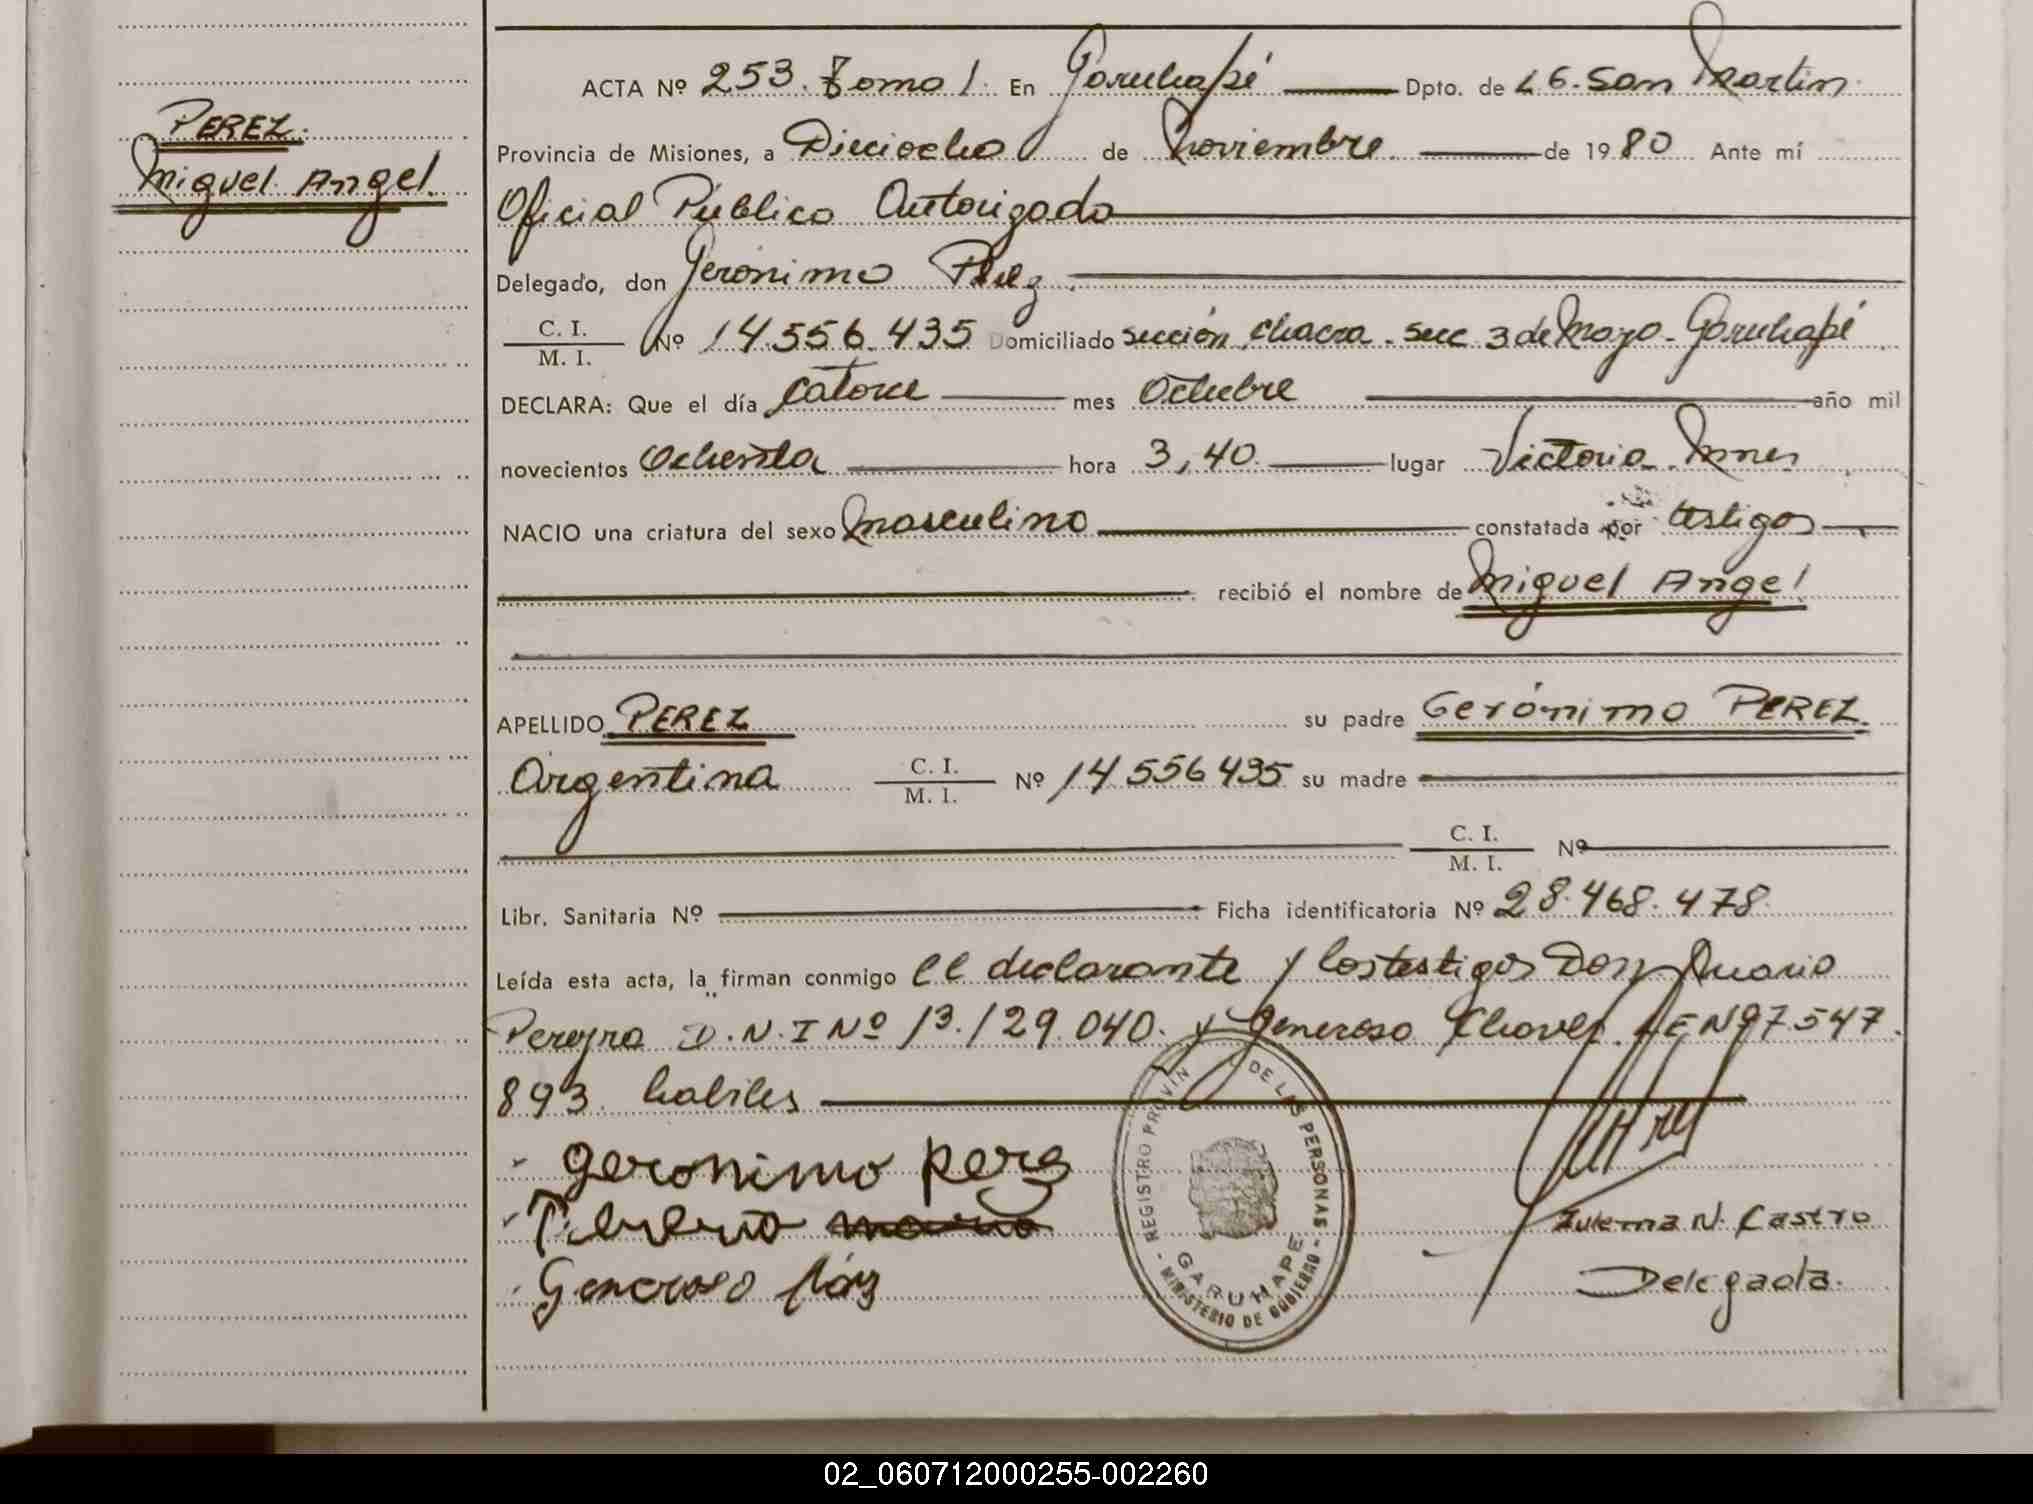 PEREZ.
Miguel Angel.
ACTA Nº 253. Tomo 1. En Garuhapé Dpto. de L G. San Martin
Provincia de Misiones, a Dieciocho de Noviembre de 1980 Ante mí
Oficial Público Autorizado
Delegado, don Gerónimo Perez
C. I.
M. I. Nº 14.556.435 Domiciliado sección chacra. Secc 3 de Mayo - Garuhapé
DECLARA: Que el día catorce mes Octubre año mil
novecientos Ochenta hora 3,40 lugar Victoria Mnes
NACIO una criatura del sexo masculino constatada por testigos
recibió el nombre de Miguel Angel
APELLIDO PEREZ su padre Gerónimo PEREZ
Argentina C. I.
M. I. Nº 14.556435 su madre
C. I.
M. I. Nº
Libr. Sanitaria Nº Ficha identificatoria Nº 28.468.478
Leída esta acta, la firman conmigo el declarante y los testigos Don Mario
Pereyra D.N.I Nº 13.129.040. y Generoso Chavez LE Nº 7.547
893. habiles
geronimo perez
Generoso
REGISTRO PROVIN DE LAS PERSONAS
GARUHAPE
MINISTERIO DE GOBIERNO
Zulema N. Castro
Delegada.
02_060712000255-002260